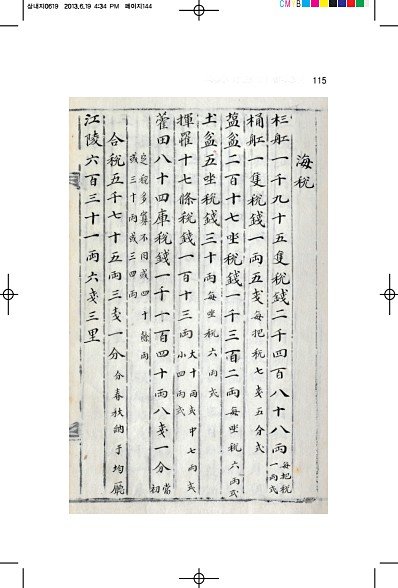 삼내지0619 2013.6.19 4:34 PM 페이지144
CMYB
115
海稅
杉舡一千九十五隻稅錢二千四百八十八兩每把稅一兩式
桶舡一隻稅錢一兩五戔每把稅七戔五分式
盐盆二百十七坐稅錢一千三百二兩每坐稅六兩式
土盆五坐稅錢三十兩每坐稅六兩式
揮羅十七條稅錢一百十三兩大十兩式中七兩式小四兩式
藿田八十四庫稅錢一千一百四十兩八戔一分當初
定稅多寡不同或四十餘兩或三十兩或三四兩
合稅五千七十五兩三戔一分分春秋納于均廳
江陵六百三十一兩六戔三里